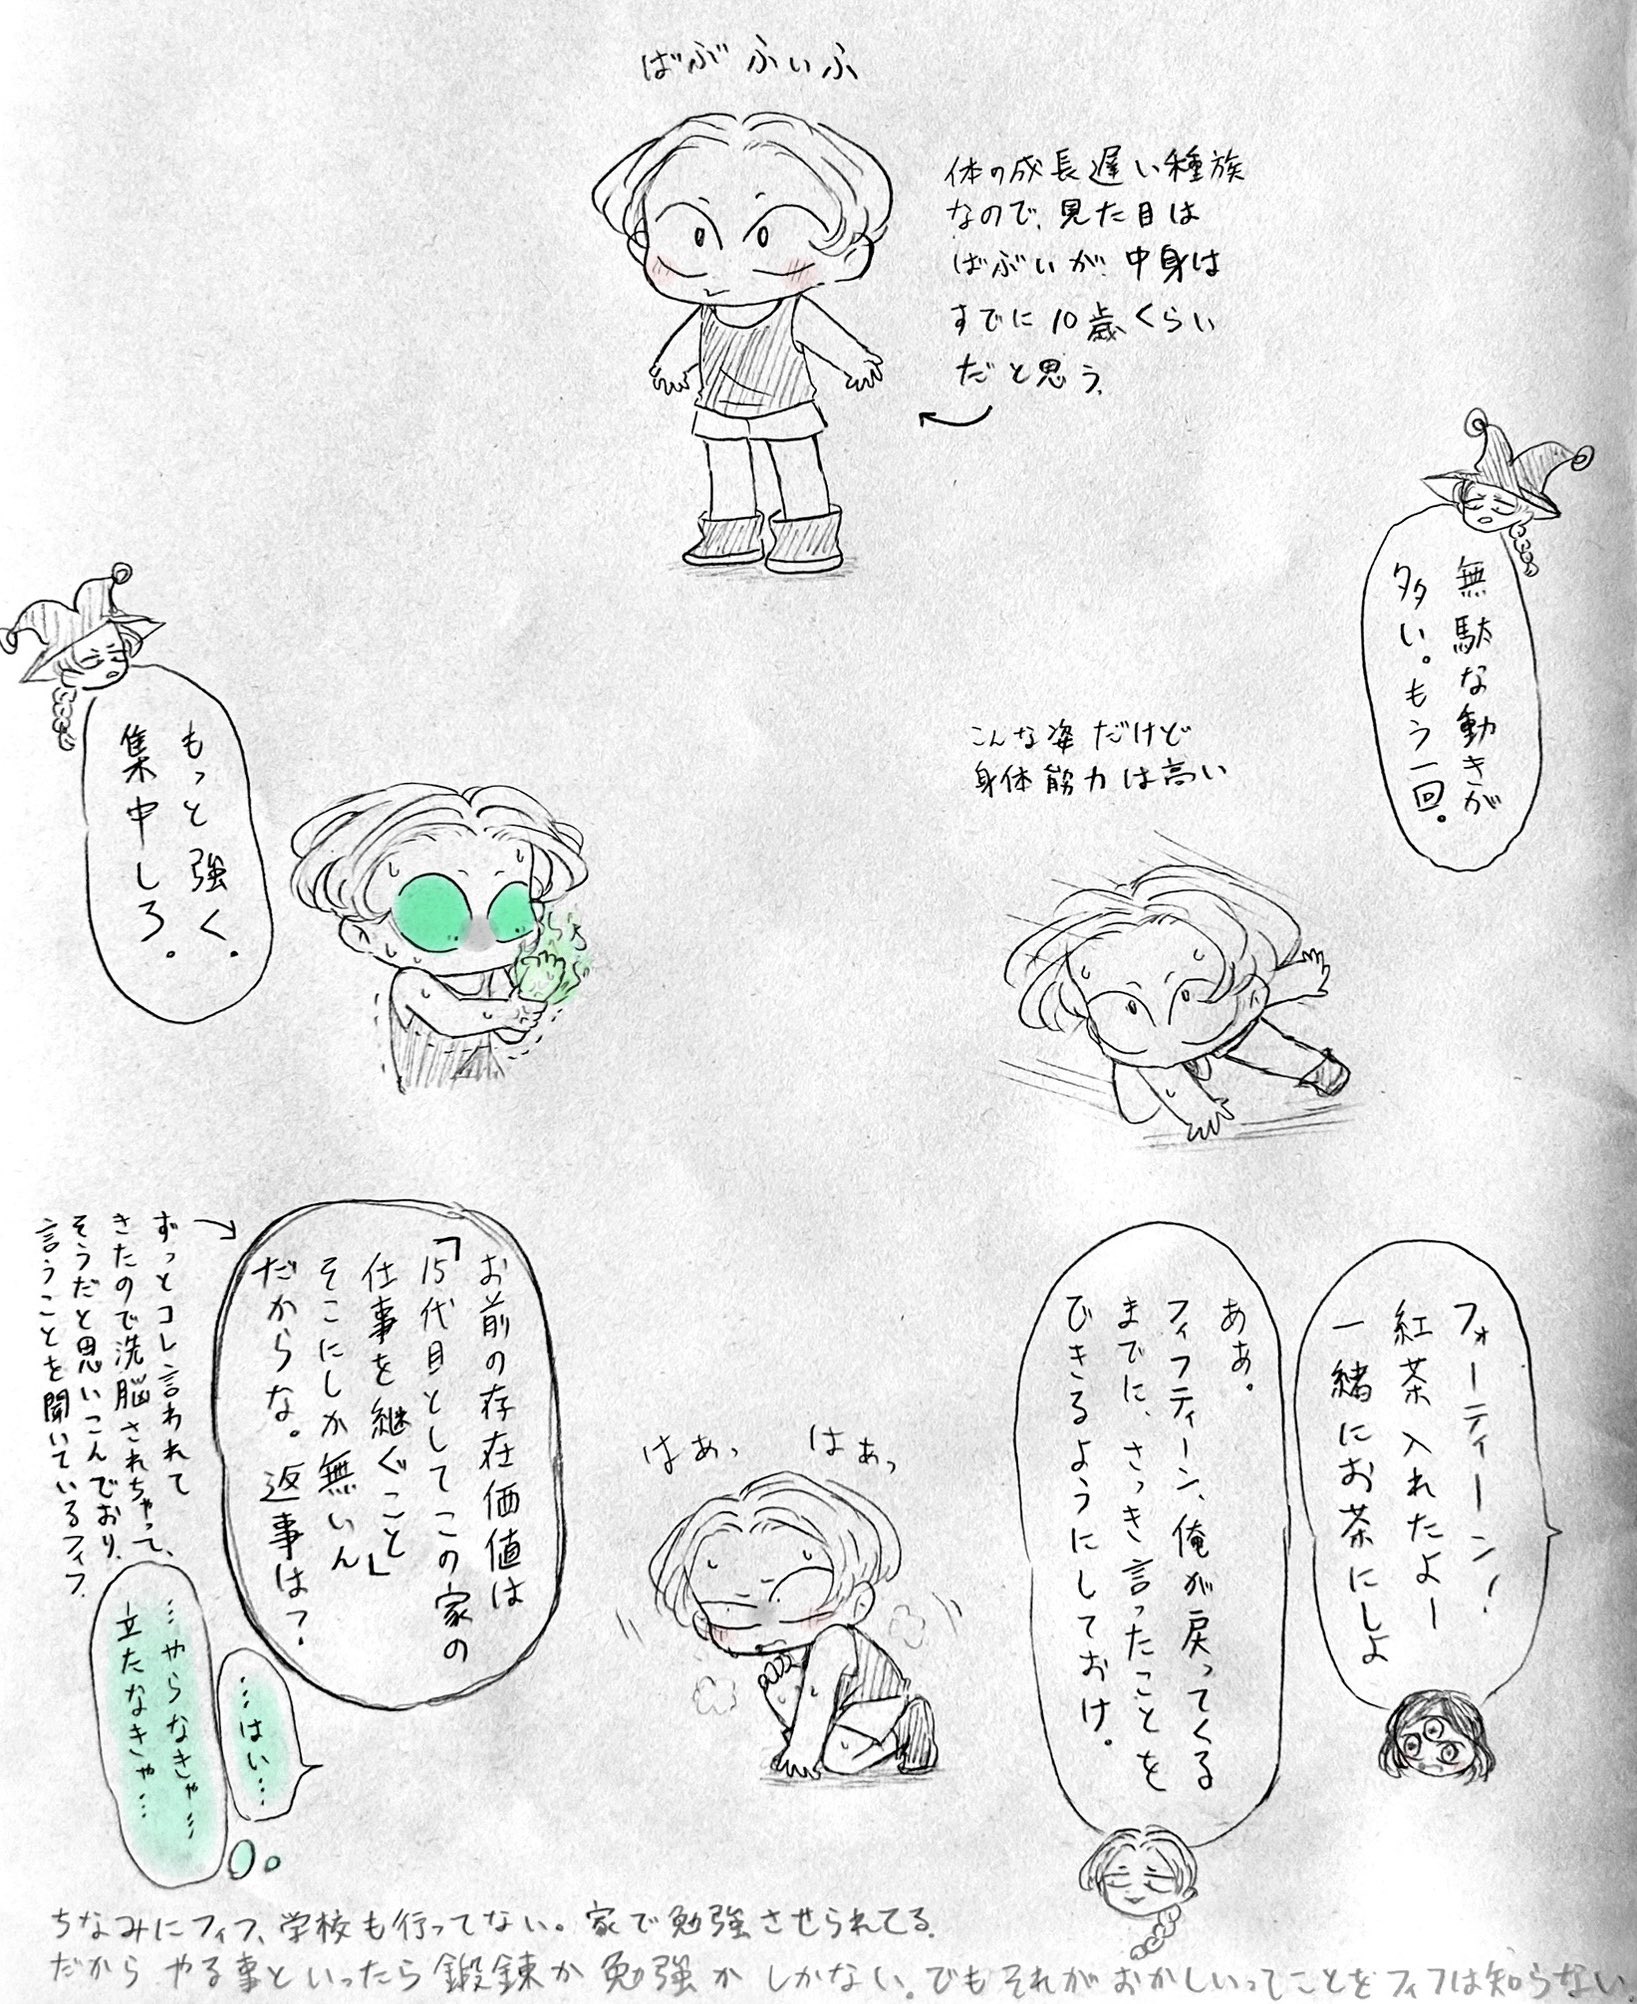 ばぶふぃふ
体の成長遅い種族
なので、見た目は
ばぶいが、中身は
すでに10歳くらい
だと思う。
無駄な動きが
多い。もう一回。
もっと強く。
集中しろ。
こんな姿だけど
身体筋力は高い
フォーティーン！
紅茶入れたよー
一緒にお茶にしよ
ああ。
フィフティーン、俺が戻ってくる
までに、さっき言ったことを
できるようにしておけ。
はぁっ
はぁっ
お前の存在価値は
「15代目としてこの家の
仕事を継ぐこと」
そこにしか無いん
だからな。返事は？
ずっとコレ言われて
きたので洗脳されちゃって、
そうだと思いこんでおり、
言うことを聞いているフィフ
…はい…
…やらなきゃ…
立たなきゃ…
ちなみにフィフ、学校も行ってない。家で勉強させられてる。
だからやる事といったら鍛錬か勉強かしかない。でもそれがおかしいってことをフィフは知らない。